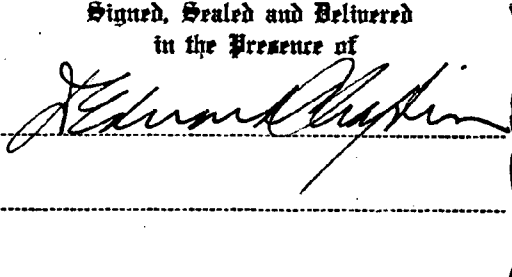 Signed, Sealed and Delivered
in the Presence of
Edward